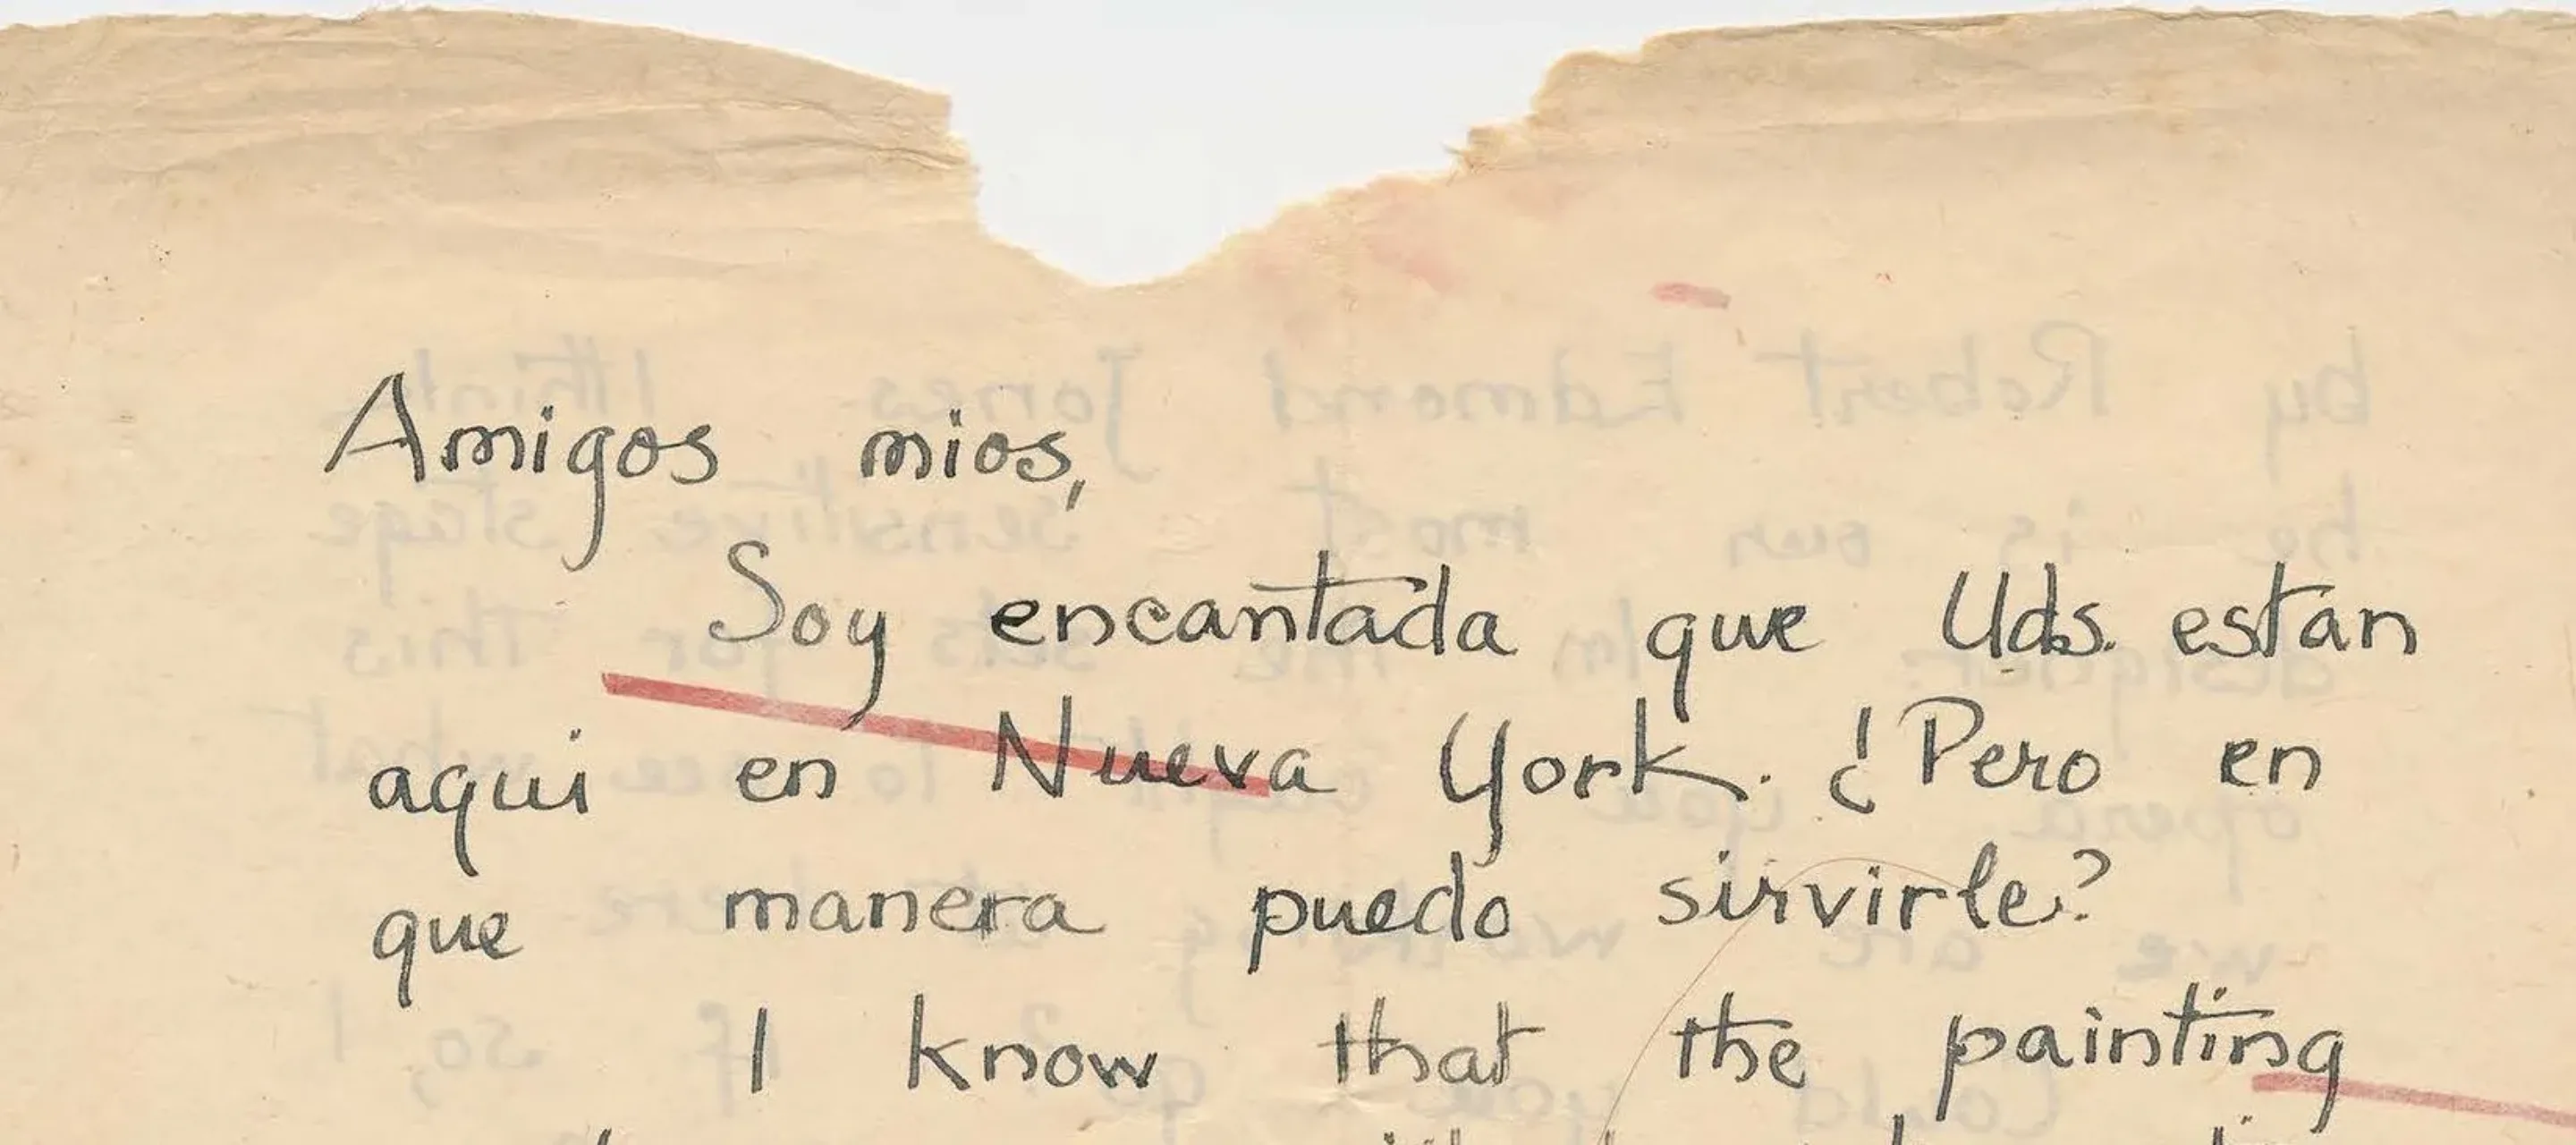 Amigos mios,
Soy encantada que Uds. estan
aqui en Nueva York. ¿Pero en
que manera puedo sirvirle?
I know that the painting